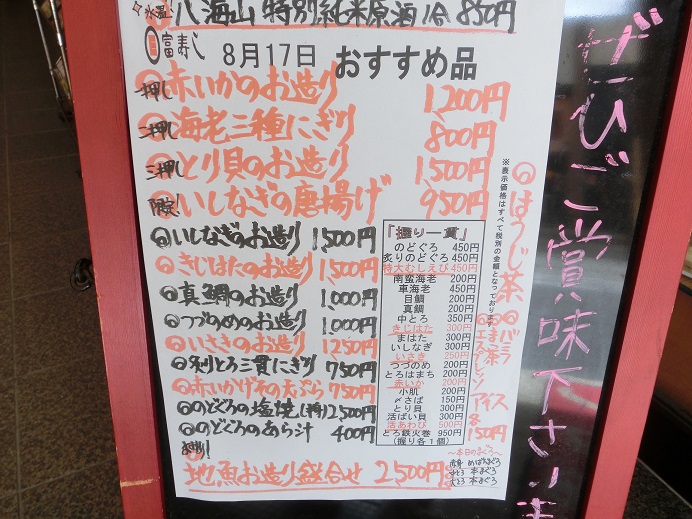 氷温 八海山 特別純米原酒1合 850円
富寿し 8月17日 おすすめ品
一押し 赤いかのお造り 1,200円
二押し 海老三種にぎり 800円
三押し とり貝のお造り 1,500円
いしなぎの唐揚げ 950円
いしなぎのお造り 1,500円
きじはたのお造り 1,500円
真鯛のお造り 1,000円
つづのめのお造り 1,000円
いさきのお造り 1,250円
炙りとろ三貫にぎり 750円
赤いかげその天ぷら 750円
のどぐろの塩焼 2,500円
のどぐろのあら汁 400円
地魚お造り盛合せ 2,500円
「握り一貫」
のどぐろ 450円
炙りのどぐろ 450円
特大むしえび 450円
南蛮海老 200円
車海老 450円
目鯛 200円
真鯛 200円
中とろ 350円
きじはた 300円
まはた 300円
いしなぎ 300円
いさき 250円
つづのめ 200円
とろはまち 200円
赤いか 200円
小肌 200円
〆さば 150円
とり貝 300円
活ばい貝 300円
活あわび 500円
とろ鉄火巻 950円
(握り各1個)
※表示価格はすべて税別の金額となっております。
ほうじ茶
バニラ
ごま
アイス
各150円
~本日のまぐろ~
赤身 めばちまぐろ
中とろ 本まぐろ
大とろ 本まぐろ
ぜひご賞味下さいま